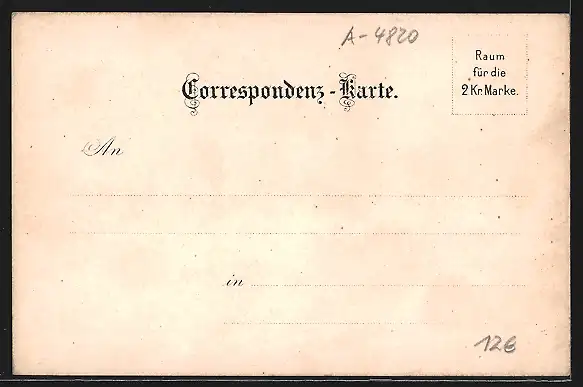 A-4820
Raum
für die
2 Kr. Marke.
Correspondenz-Karte.
An
in
12€